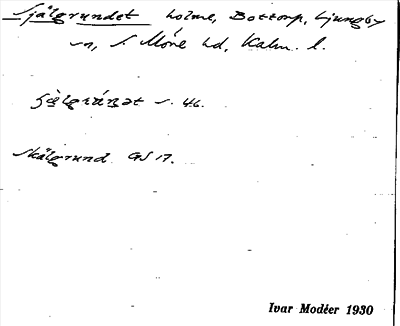 Själgrundet holme, Bottorp, Ljungby
sn, S. Möre hd, Kalm. l.
s. 46.
Skälgrund GS 17.
Ivar Modéer 1930